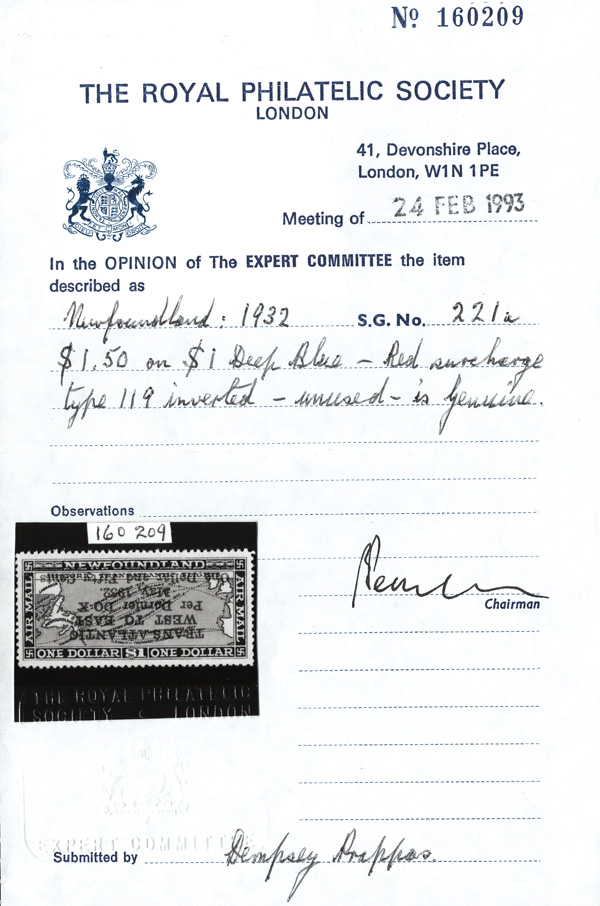 Nº 160209
THE ROYAL PHILATELIC SOCIETY
LONDON
41, Devonshire Place,
London, W1N 1PE
Meeting of 24 FEB 1993
In the OPINION of The EXPERT COMMITTEE the item
described as
Newfoundland: 1932 S.G. No. 221a
$1.50 on $1 Deep Blue – Red surcharge
type 119 inverted – unused – is genuine.
Observations
160 209
NEWFOUNDLAND
AIR MAIL
AIR MAIL
TRANS-ATLANTIC
WEST TO EAST
Per Dornier DO-X
May, 1932.
One Dollar and Fifty Cents
ONE DOLLAR $1 ONE DOLLAR
THE ROYAL PHILATELIC
SOCIETY LONDON
Chairman
EXPERT COMMITTEE
Submitted by Dempsey Prappas.